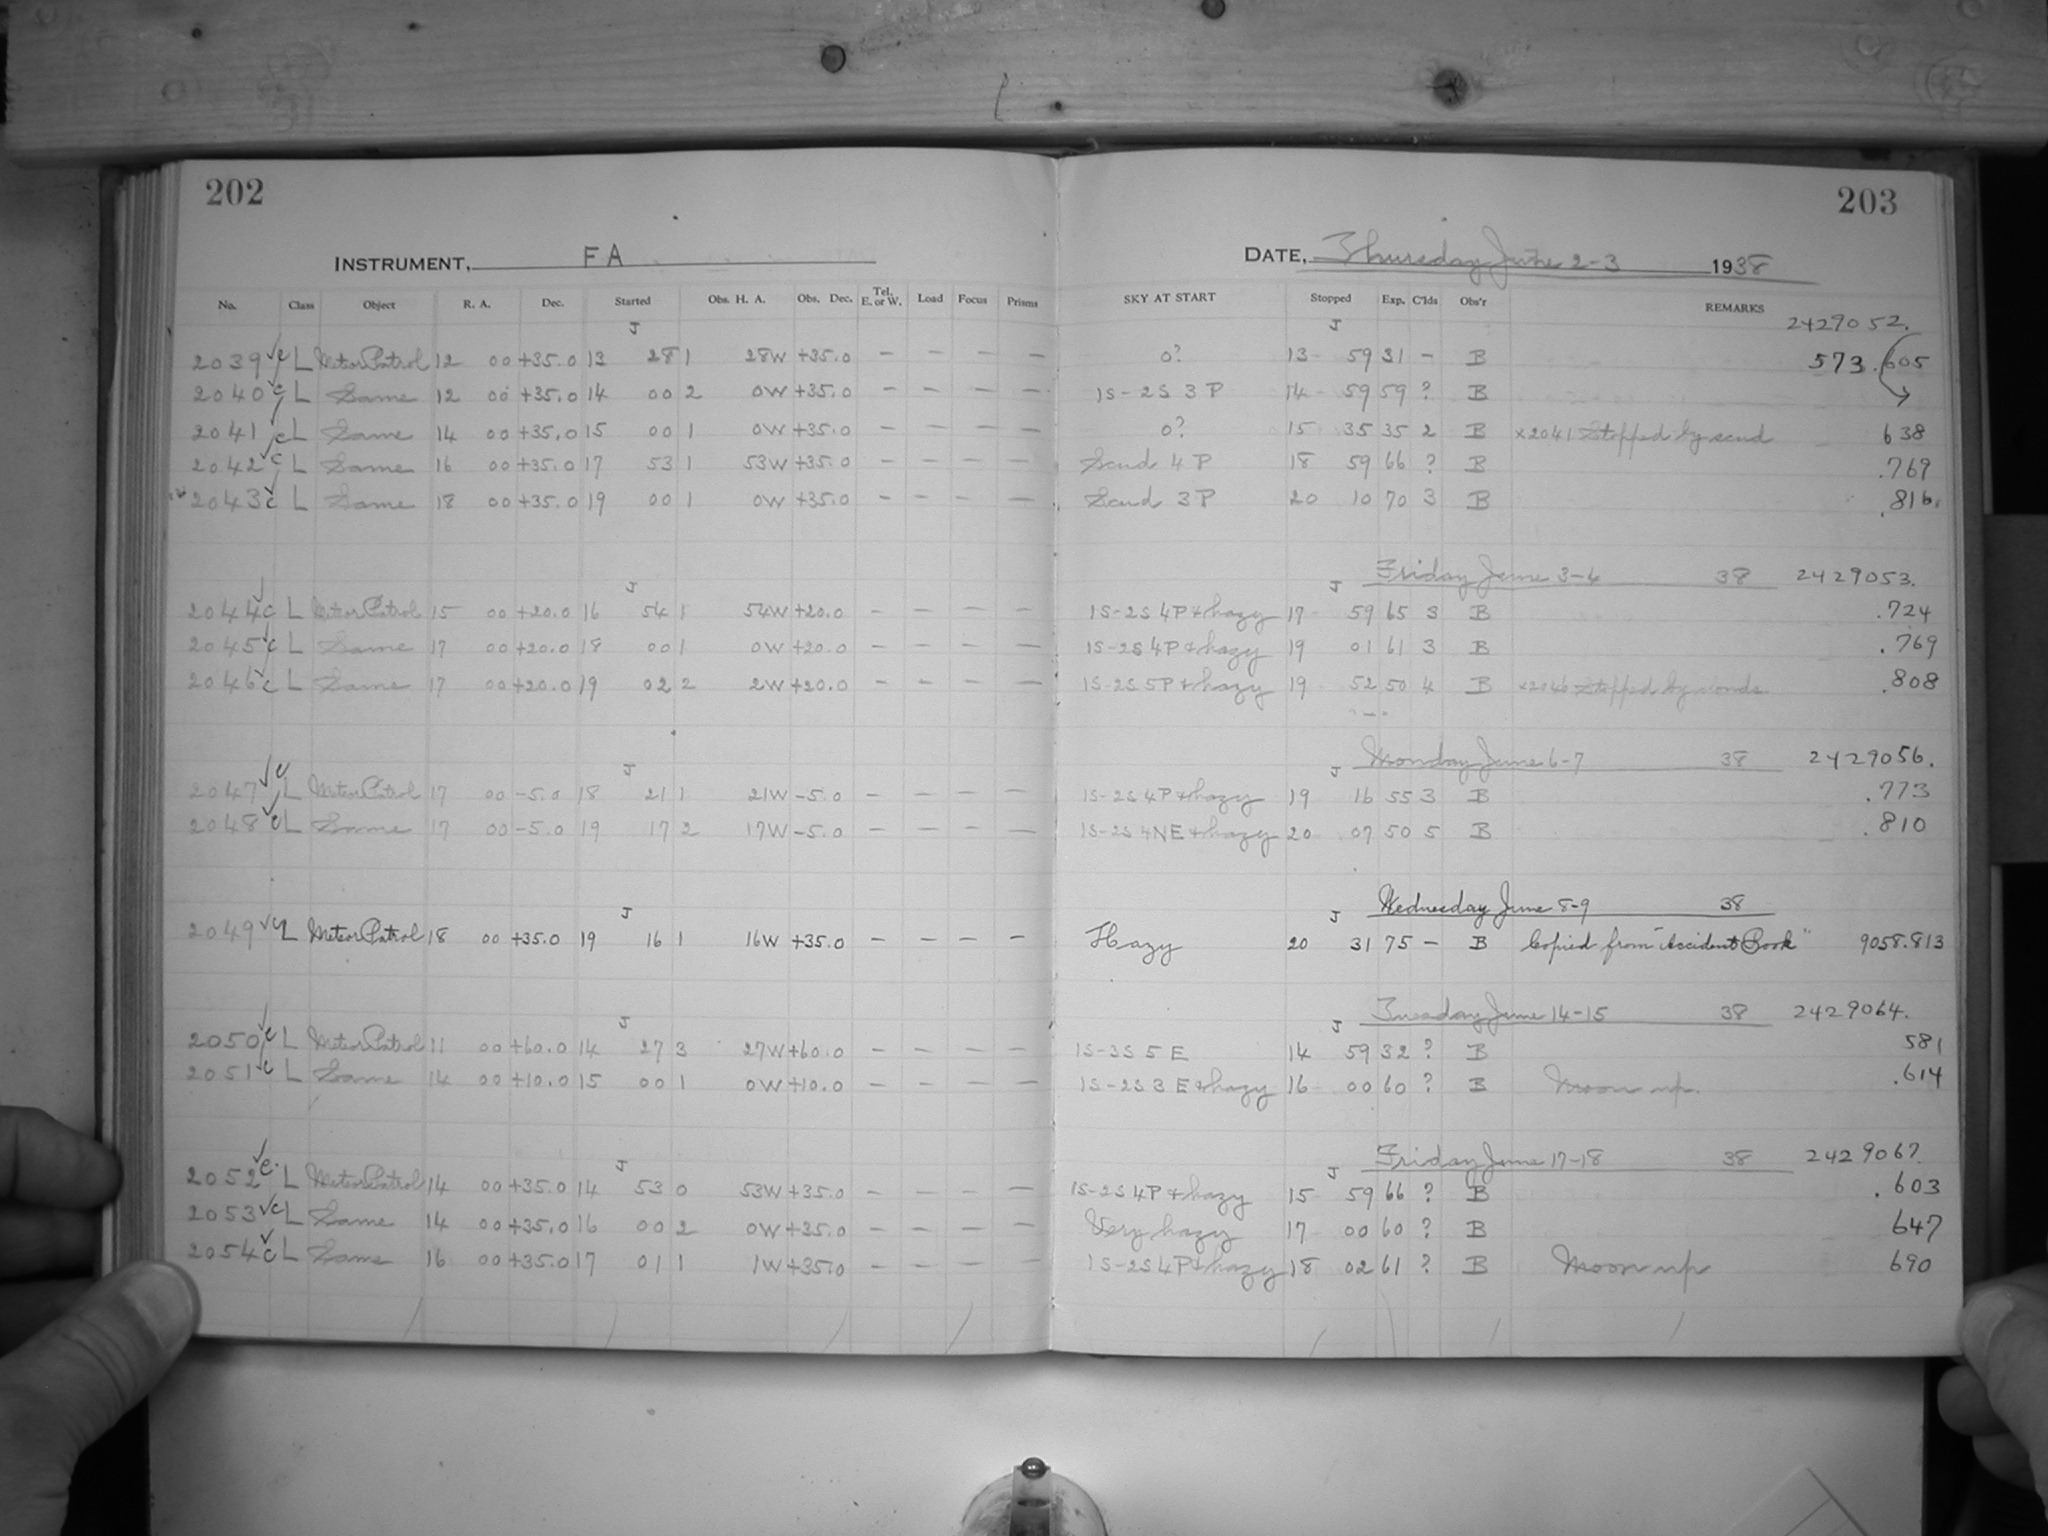 202
203
INSTRUMENT, FA
DATE, Thursday June 2-3 1938
No. Class Object R. A. Dec. Started Obs. H. A. Obs. Dec. Tel. E. or W. Load Focus Prisms SKY AT START Stopped Exp. C'lds Obs'r REMARKS
J J 2429052.
2039 ✓c L Meteor Patrol 12 00 +35.0 13 28 1 28W +35.0 – – – – 0? 13 59 31 – B 573 .605
2040 c L Same 12 00 +35.0 14 00 2 0W +35.0 – – – – 1S-2S 3 P 14 59 59 ? B
2041 c L Same 14 00 +35.0 15 00 1 0W +35.0 – – – – 0? 15 35 35 2 B x2041 Stopped by scud 638
2042 ✓c L Same 16 00 +35.0 17 53 1 53W +35.0 – – – – Scud 4 P 18 59 66 ? B .769
2043 c L Same 18 00 +35.0 19 00 1 0W +35.0 – – – – Scud 3 P 20 10 70 3 B .816.
J J Friday June 3-4 38 2429053.
2044 ✓c L Meteor Patrol 15 00 +20.0 16 54 1 54W +20.0 – – – – 1S-2S 4P + hazy 17 59 65 3 B .724
2045 ✓c L Same 17 00 +20.0 18 00 1 0W +20.0 – – – – 1S-2S 4P + hazy 19 01 61 3 B .769
2046 ✓c L Same 17 00 +20.0 19 02 2 2W +20.0 – – – – 1S-2S 5P + hazy 19 52 50 4 B x2046 Stopped by clouds .808
J J Monday June 6-7 38 2429056.
2047 ✓c L Meteor Patrol 17 00 -5.0 18 21 1 21W -5.0 – – – – 1S-2S 4P + hazy 19 16 55 3 B .773
2048 ✓c L Same 17 00 -5.0 19 17 2 17W -5.0 – – – – 1S-2S 4NE + hazy 20 07 50 5 B .810
J J Wednesday June 8-9 38
2049 ✓c L Meteor Patrol 18 00 +35.0 19 16 1 16W +35.0 – – – – Hazy 20 31 75 – B Copied from "Accident Book" 9058.813
J J Tuesday June 14-15 38 2429064.
2050 ✓c L Meteor Patrol 11 00 +60.0 14 27 3 27W +60.0 – – – – 1S-3S 5 E 14 59 32 ? B 581
2051 ✓c L Same 14 00 +10.0 15 00 1 0W +10.0 – – – – 1S-2S 3 E + hazy 16 00 60 ? B Moon up. .614
J J Friday June 17-18 38 2429067.
2052 ✓c. L Meteor Patrol 14 00 +35.0 14 53 0 53W +35.0 – – – – 1S-2S 4P + hazy 15 59 66 ? B .603
2053 ✓c L Same 14 00 +35.0 16 00 2 0W +35.0 – – – – Very hazy 17 00 60 ? B 647
2054 ✓c L Same 16 00 +35.0 17 01 1 1W +35.0 – – – – 1S-2S 4P + hazy 18 02 61 ? B Moon up 690